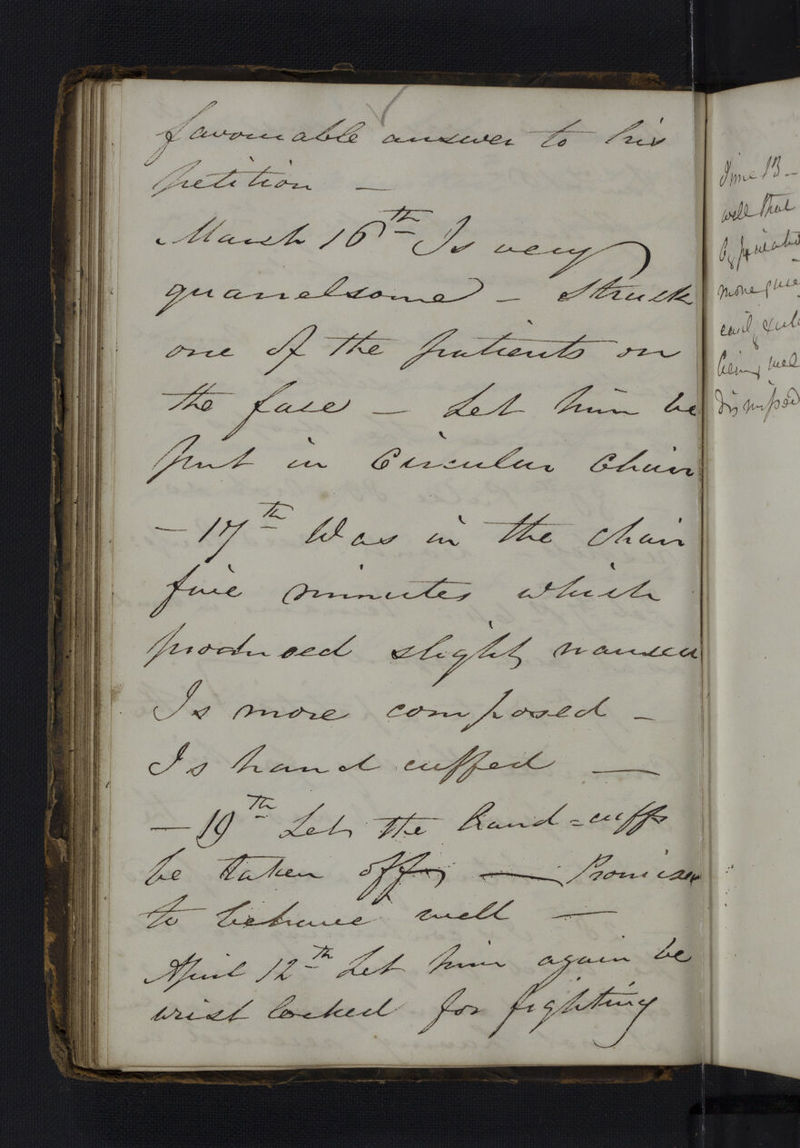 favourable answer to his
petition —
March 16th Is very
quarrelsome — Struck
one of the patients on
the face — Let him be
put in Circular Chair
— 17th Was in the chair
five minutes which
produced slight nausea
Is more composed —
Is hand cuffed —
— 19th Let the hand=cuffs
be taken off — Promises
to behave well —
April 12th Let him again be
wrist locked for fighting
June 13 —
well that
more
being